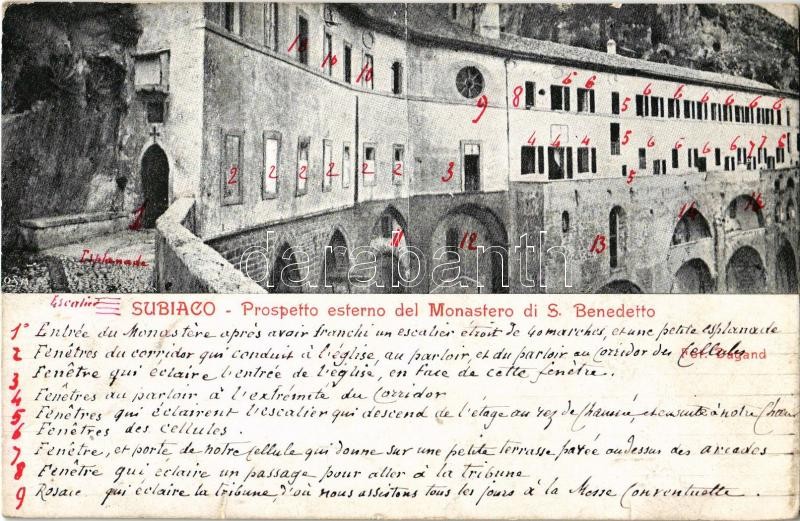 10 10 10
9
8 6 6 6 6 6 6 6 6 6 6
5
4 4 4 5 6 6 6 6 6 7 7 6 6
2 2 2 2 2 2 3
5
1 11 12 13 14 14
Esplanade
darabanth
Escalier
SUBIACO - Prospetto esterno del Monastero di S. Benedetto
Fot. Dagand
1° Entrée du Monastère après avoir franchi un escalier étroit de 40 marches, et une petite esplanade
2 Fenêtres du corridor qui conduit à l'église, au parloir, et du parloir au Corridor des Cellules
3 Fenêtre qui éclaire l'entrée de l'église, en face de cette fenêtre.
4 Fenêtres au parloir, à l'extrémité du Corridor
5 Fenêtres qui éclairent l'escalier qui descend de l'étage au rez de Chaussée, et ensuite à notre Chœur
6 Fenêtres des cellules.
7 Fenêtre, et porte de notre Cellule qui donne sur une petite terrasse pavée au dessus des arcades
8 Fenêtre qui éclaire un passage pour aller à la tribune
9 Rosace qui éclaire la tribune, d'où nous assistons tous les jours à la Messe Conventuelle.